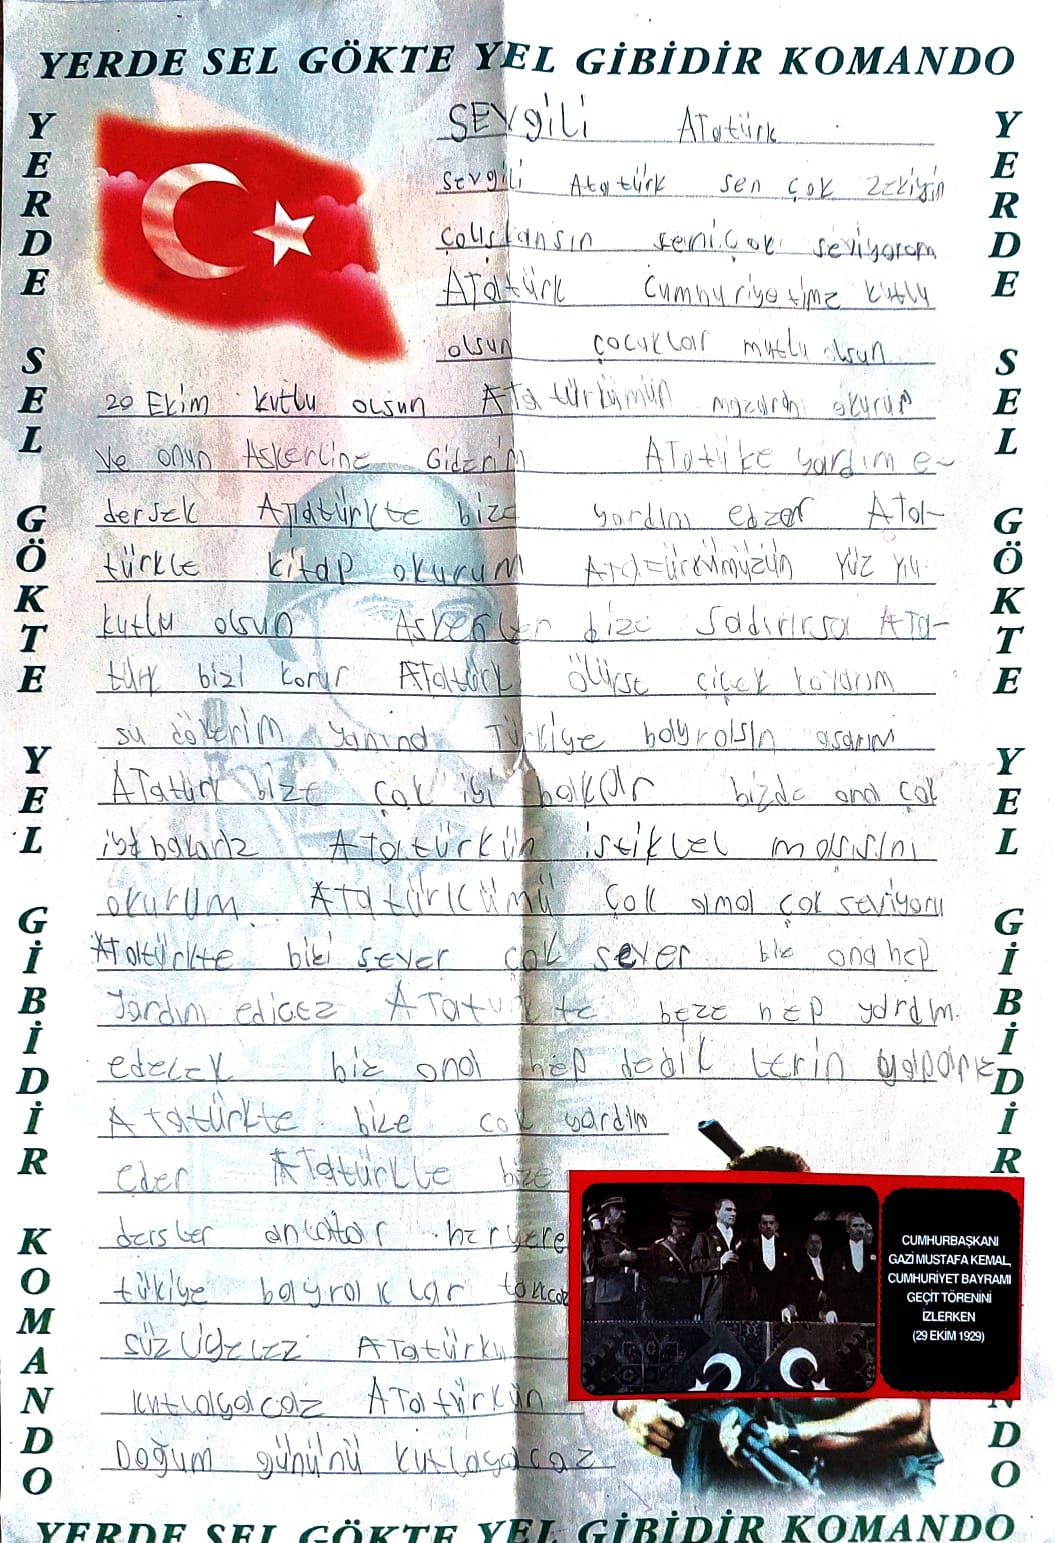 YERDE SEL GÖKTE YEL GİBİDİR KOMANDO
YERDE SEL GÖKTE YEL GİBİDİR KOMANDO
SEVgiLi ATatürk
sevgili Atatürk sen çok zekiyin
çalışkansın seni çok seviyorom
ATatürk cumhuriyetimz kutlu
olsun çocuklar mutlu olsun
20 Ekim kutlu olsun ATatürkümün mazarını okurum
ve onun Askerline giderim ATatüke yardım e-
dersek ATatürkte bize yardım edzer ATa-
türkle kitap okurum ATatürkümüzün yüz yılı
kutlu olsun Askerler bize saldırırsa ATa-
türk bizi korur ATatürk ölürse çiçek koyarım
su dökerim yanınd Türkiye bayrolsın asarım
ATatürk bize çok iyi bakar bizde ona çok
iyi bakarız ATatürkün istiklel marşısını
okurum ATatürkümü çok ama çok seviyoru
ATatürkte bizi sever çok sever biz ona hep
yardım edicez ATatürkte beze hep yardım
edecek biz ona hep dedik lerin yaparız
ATatürkte bize çok yardım
eder ATatürkte bize
dersler anlatar heryere
türkiye bayrak lar takcaz
süzliyelez ATatürkü
kutlayalcaz ATatürkün
Doğum gününü kutlayalcaz
CUMHURBAŞKANI
GAZİ MUSTAFA KEMAL,
CUMHURİYET BAYRAMI
GEÇİT TÖRENİNİ
İZLERKEN
(29 EKİM 1929)
YERDE SEL GÖKTE YEL GİBİDİR KOMANDO
YERDE SEL GÖKTE YEL GİBİDİR KOMANDO